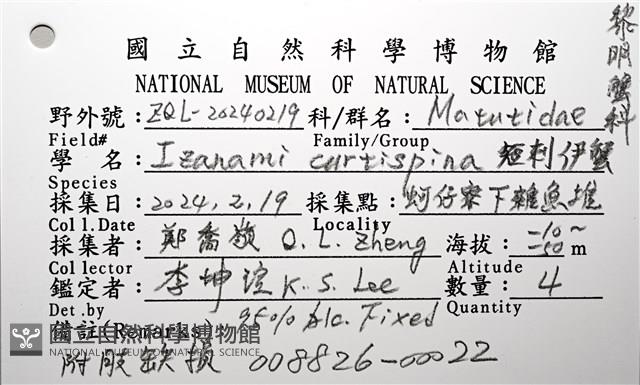 黎明蟹科
國立自然科學博物館
NATIONAL MUSEUM OF NATURAL SCIENCE
野外號：ZQL-20240219 科/群名：Matutidae
Field# Family/Group
學 名：Izanami curtispina 短刺伊蟹
Species
採集日：2024, 2, 19 採集點：蚵仔寮下雜魚堆
Coll.Date Locality
採集者：鄭喬嶺 Q. L. Zheng 海拔：-10～-50 m
Collector Altitude
鑑定者：李坤瑄 K. S. Lee 數量：4
Det.by Quantity
備註(Remarks) 95% Alc. Fixed
國立自然科學博物館
NATIONAL MUSEUM OF NATURAL SCIENCE
附肢 008826-00022